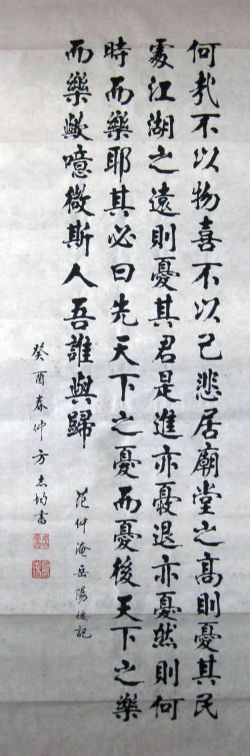 何哉不以物喜不以己悲居廟堂之高則憂其民
處江湖之遠則憂其君是進亦憂退亦憂然則何
時而樂耶其必曰先天下之憂而憂後天下之樂
而樂歟噫微斯人吾誰與歸
范仲淹岳陽樓記
癸酉春仲方志書